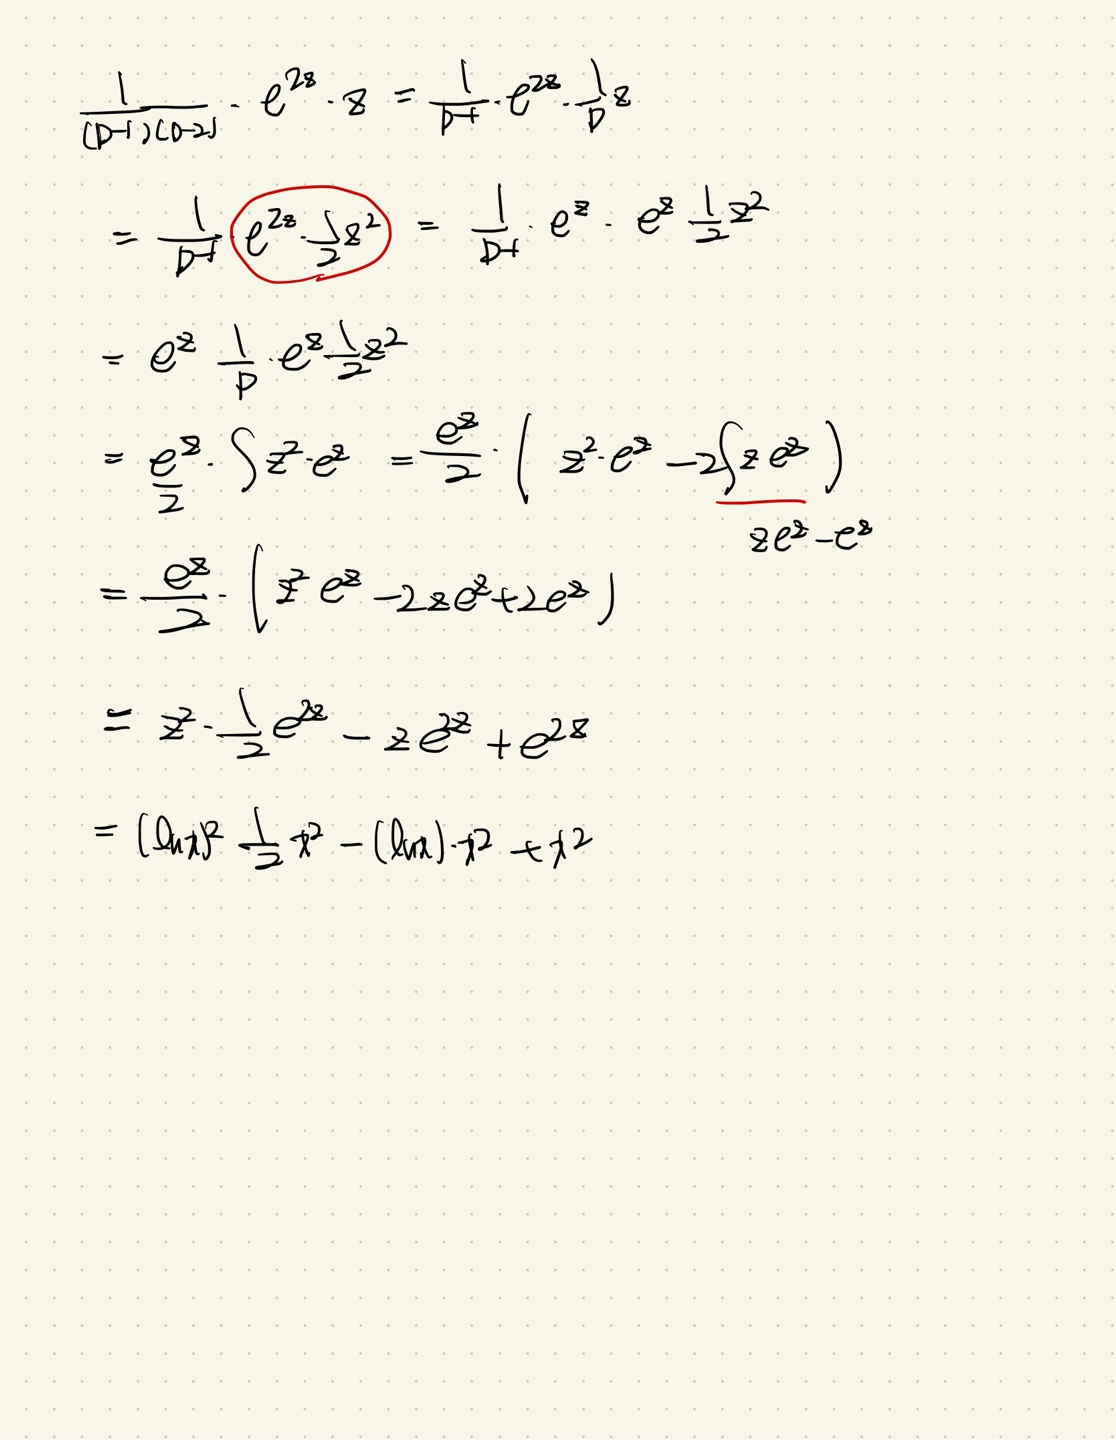 1/((D-1)(D-2)) · e^{2z} · z = 1/(D-1) · e^{2z} · 1/D z
= 1/(D-1) · e^{2z} · 1/2 z^2 = 1/(D-1) · e^z · e^z 1/2 z^2
= e^z 1/D · e^z 1/2 z^2
= e^z/2 · ∫ z^2 · e^z = e^z/2 · ( z^2 · e^z - 2∫ z e^z )
ze^z - e^z
= e^z/2 · ( z^2 e^z - 2ze^z + 2e^z )
= z^2 · 1/2 e^{2z} - ze^{2z} + e^{2z}
= (lnx)^2 1/2 x^2 - (lnx) · x^2 + x^2